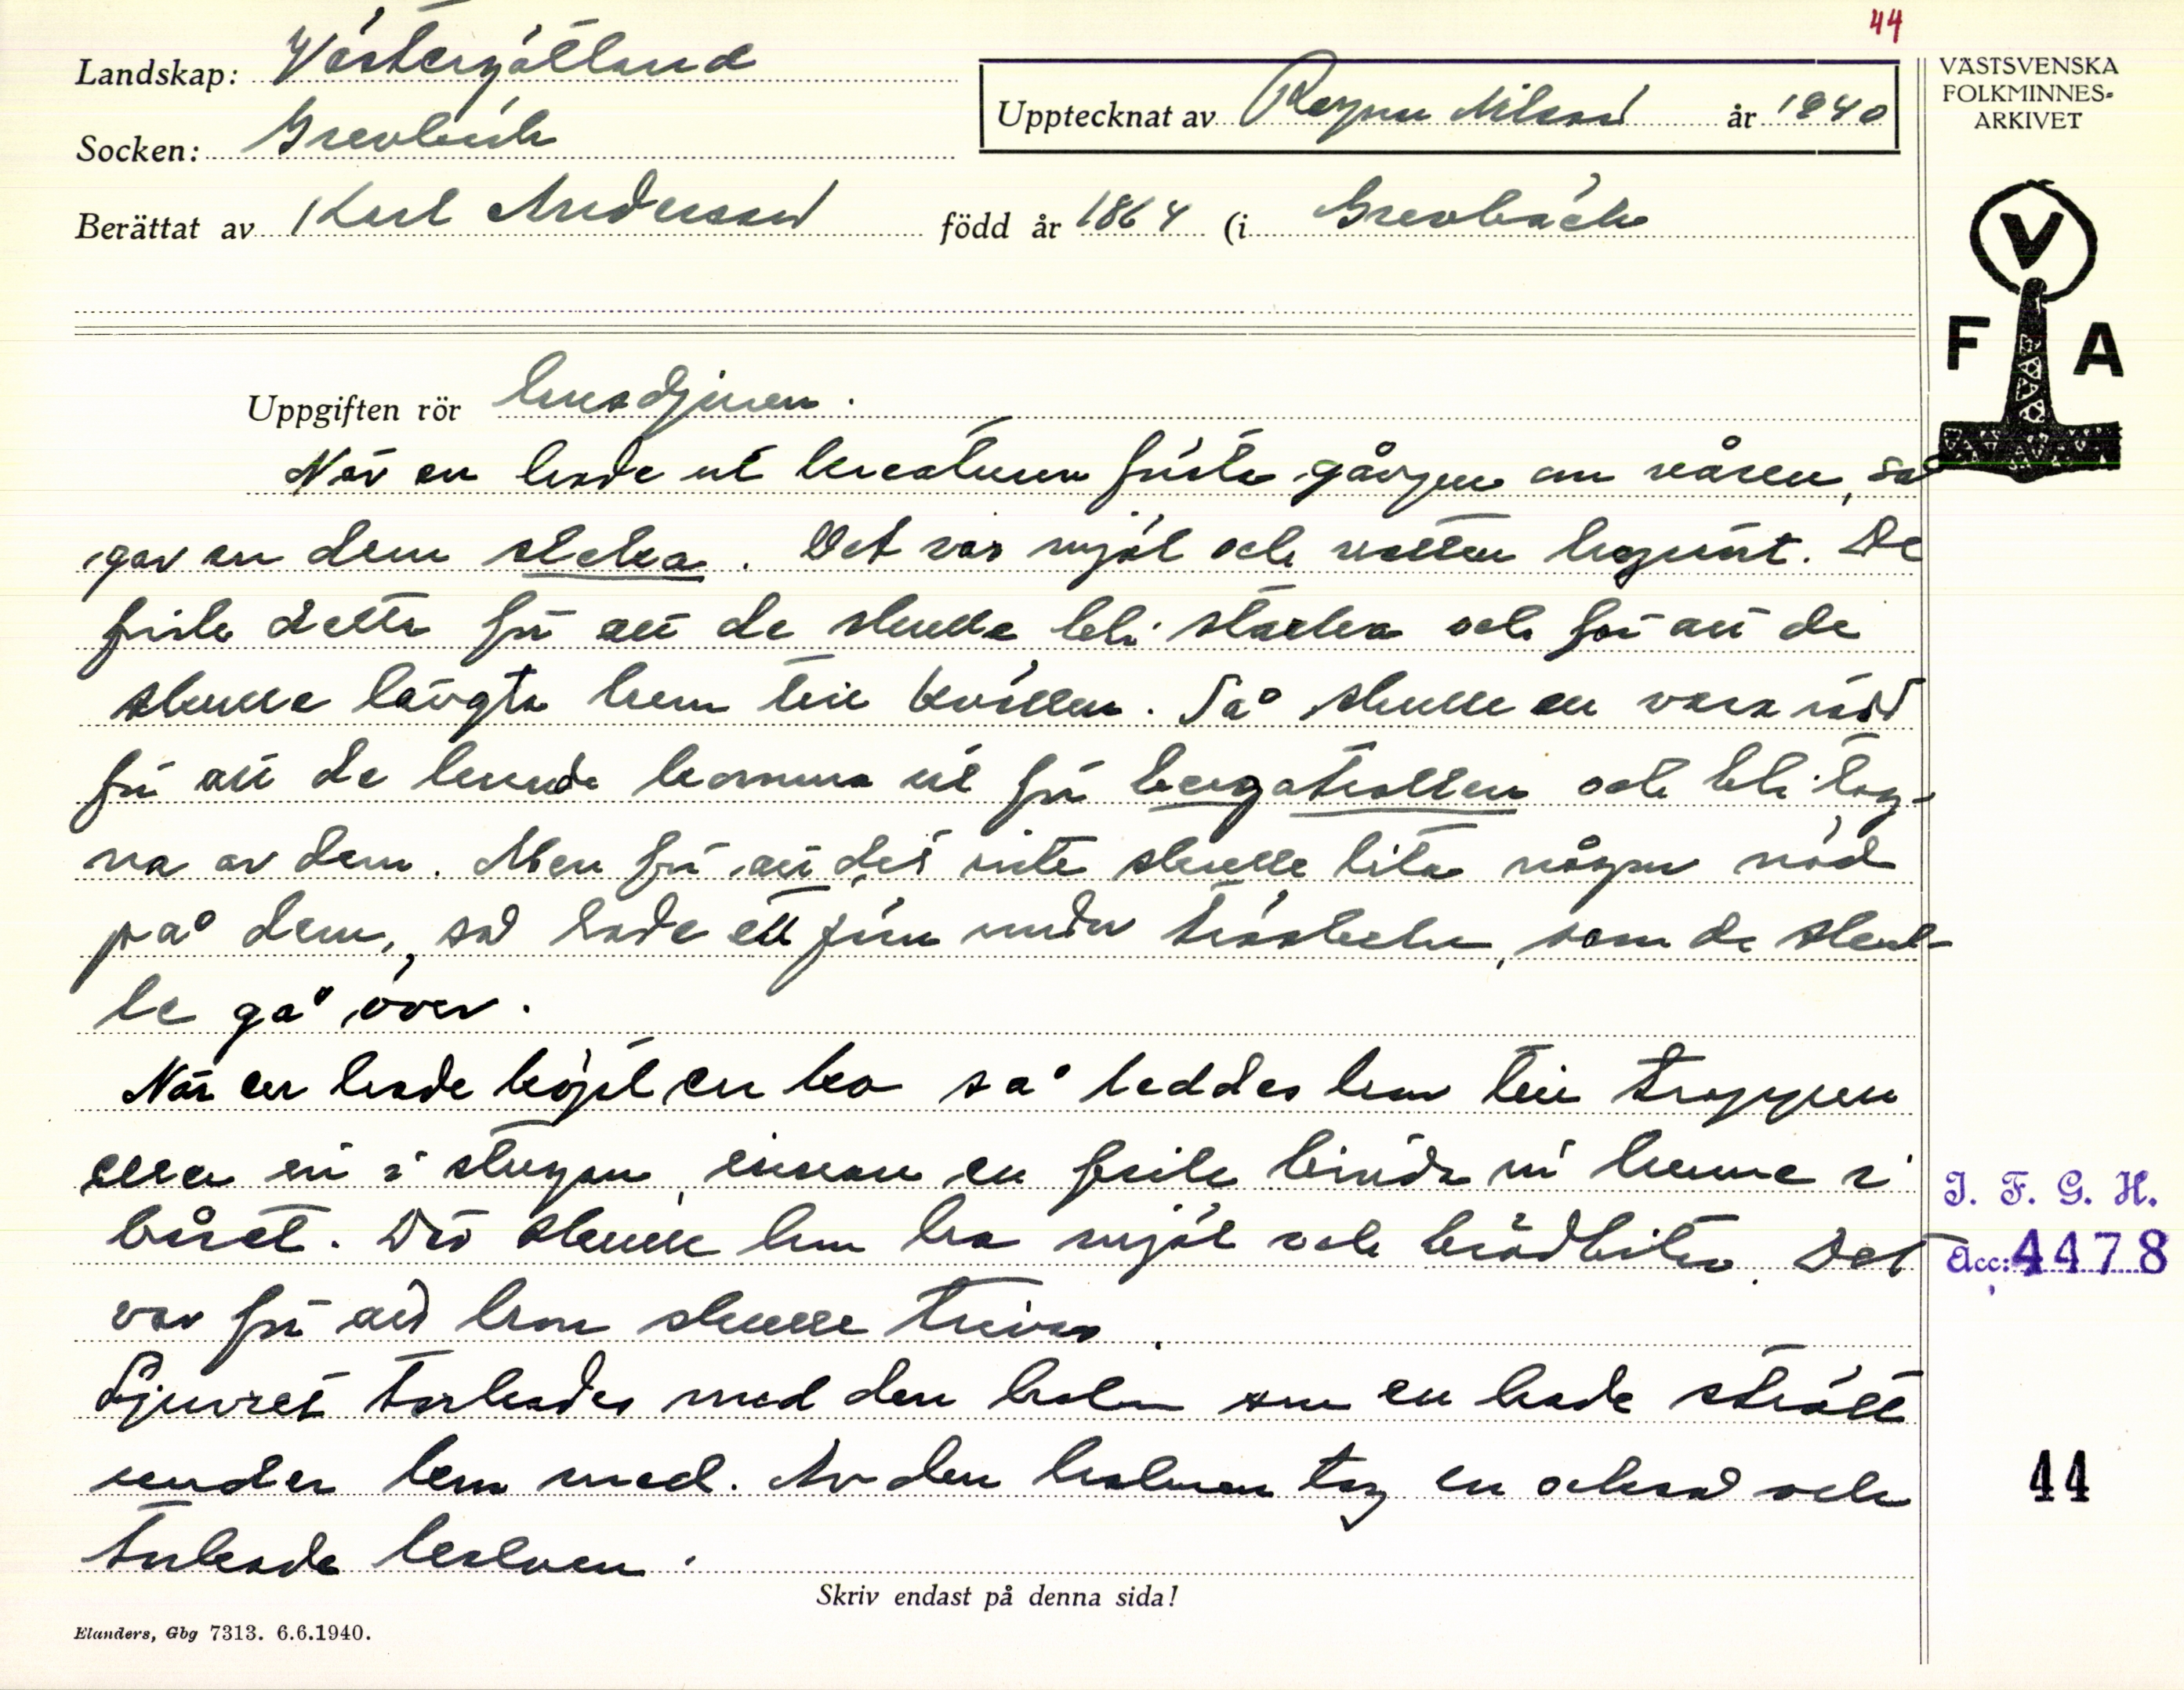 44
Landskap: Västergötland
Socken: Grevbäck
Upptecknat av Ragnar Nilsson år 1940
Berättat av Karl Andersson född år 1864 (i Grevbäck
VÄSTSVENSKA
FOLKMINNES-
ARKIVET
V
F A
Uppgiften rör husdjuren.
När en hade ut kreaturen första gången om våren, så
gav en dem sleka. Det var mjöl och vatten hoprört. De
fick detta för att de skulle bli starka och för att de
skulle längta hem till kvällen. Så skulle en vara rädd
för att de kunde komma ut för bergatrollen och bli tag-
na av dem. Men för att det inte skulle lita någon nöd
på dem, så lade ett järn under tröskeln, som de skul-
le gå över.
När en hade köpt en ko så leddes hon till trappen
eller in i stugan, innan en fick binda in henne i
båset. Där skulle hon ha mjöl och brödbitar. Det
var för att hon skulle trivas.
Djuret torkades med den halm som en hade strött
under hem med. Av den halmen tog en också och
torkade kalven.
I. F. G. H.
Acc: 4478
44
Skriv endast på denna sida!
Elanders, Gbg 7313. 6.6.1940.